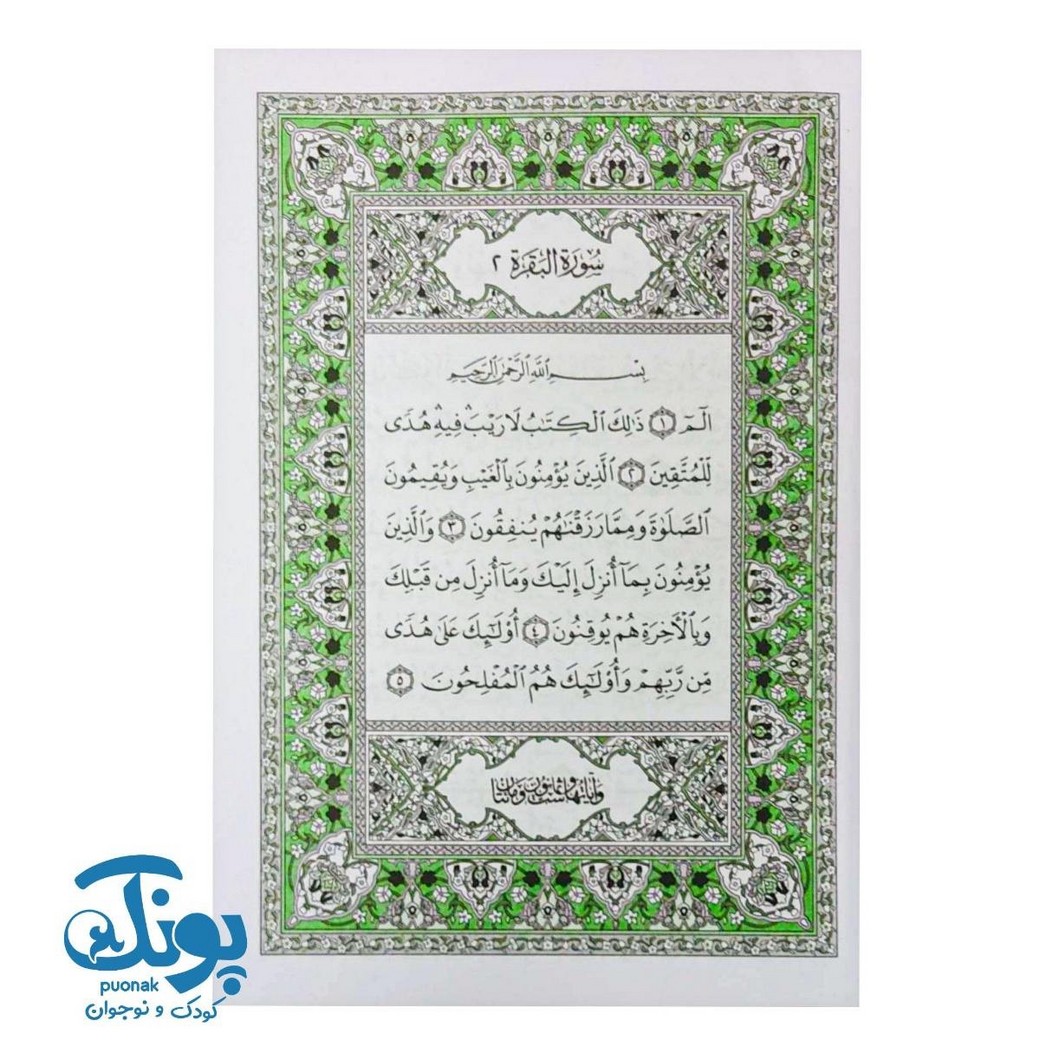 سُورَةُ الْبَقَرَةِ ٢
بِسْمِ ٱللَّهِ ٱلرَّحْمَٰنِ ٱلرَّحِيمِ
الٓمٓ ١ ذَٰلِكَ ٱلْكِتَٰبُ لَا رَيْبَ ۛ فِيهِ ۛ هُدًى
لِّلْمُتَّقِينَ ٢ ٱلَّذِينَ يُؤْمِنُونَ بِٱلْغَيْبِ وَيُقِيمُونَ
ٱلصَّلَوٰةَ وَمِمَّا رَزَقْنَٰهُمْ يُنفِقُونَ ٣ وَٱلَّذِينَ
يُؤْمِنُونَ بِمَآ أُنزِلَ إِلَيْكَ وَمَآ أُنزِلَ مِن قَبْلِكَ
وَبِٱلْأَخِرَةِ هُمْ يُوقِنُونَ ٤ أُو۟لَٰٓئِكَ عَلَىٰ هُدًى
مِّن رَّبِّهِمْ وَأُو۟لَٰٓئِكَ هُمُ ٱلْمُفْلِحُونَ ٥
وآياتها ست وثمانون ومائتان
پونک
puonak
کودک و نوجوان